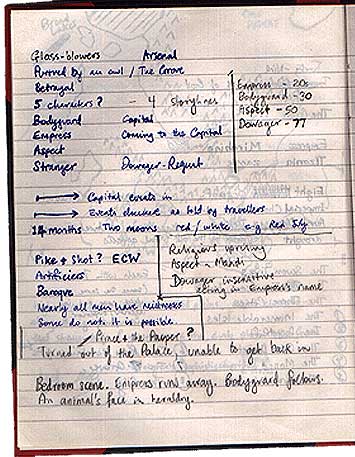 Glass-blowers Arsenal
Pursued by an owl / The Grove
Betrayal
5 characters? - 4 storylines
Bodyguard Capital
Empress Coming to the Capital
Aspect
Stranger Dowager-Regent
Empress - 20
Bodyguard - 30
Aspect - 50
Dowager - 77
Capital events in
Events elsewhere as told by travellers
14 months Two moons red/white e.g Red July
Pike & Shot? ECW
Artificiers
Baroque
Nearly all men have mistresses
Some do not. It is possible
Religious uprising
Aspect - Mahdi
Dowager insensitive
acting in Empress's name
Prince & the Pauper?
Turned out of the Palace, unable to get back in
Bedroom scene. Empress runs away. Bodyguard follows.
An animal's face in heraldry.